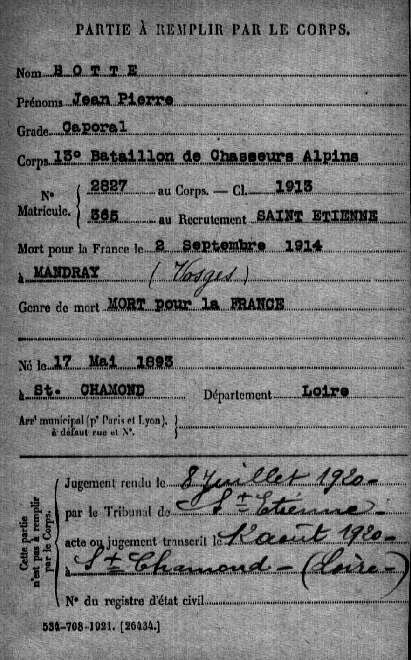 PARTIE À REMPLIR PAR LE CORPS.
Nom BOTTE
Prénoms Jean Pierre
Grade Caporal
Corps 13° Bataillon de Chasseurs Alpins
N° Matricule. { 2827 au Corps. — Cl. 1913
365 au Recrutement SAINT ETIENNE
Mort pour la France le 2 Septembre 1914
à MANDRAY (Vosges)
Genre de mort MORT pour la FRANCE
Né le 17 Mai 1893
à St. CHAMOND Département Loire
Arrt municipal (pr Paris et Lyon), }
à défaut rue et N°.
Cette partie n'est pas à remplir par le Corps.
Jugement rendu le 8 Juillet 1920
par le Tribunal de St Etienne
acte ou jugement transcrit le 12 août 1920
à St Chamond (Loire)
N° du registre d'état civil
534-708-1921. [26434.]